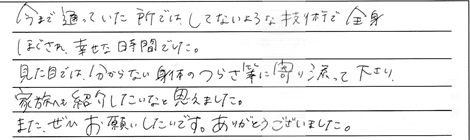 今まで通っていた所では、してないような技術で全身
ほぐされ、幸せな日時間でした。
見た目では、分からない身体のつらさ等に寄り添って下さり、
家族へも紹介したいなと思えました。
また、ぜひお願いしたいです。ありがとうございました。